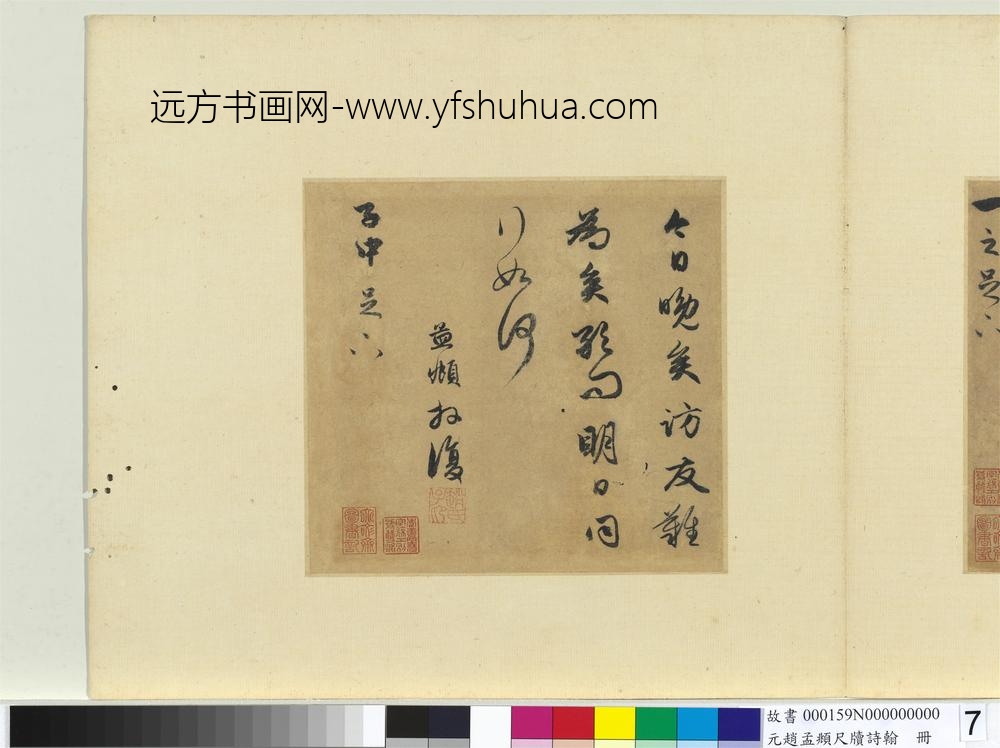 远方书画网-www.yfshuhua.com
今日晚矣訪友難
為矣
明日同
行如何
孟頫拜復
子中足下
之足下
故書 000159N000000000
元趙孟頫尺牘詩翰 冊
7